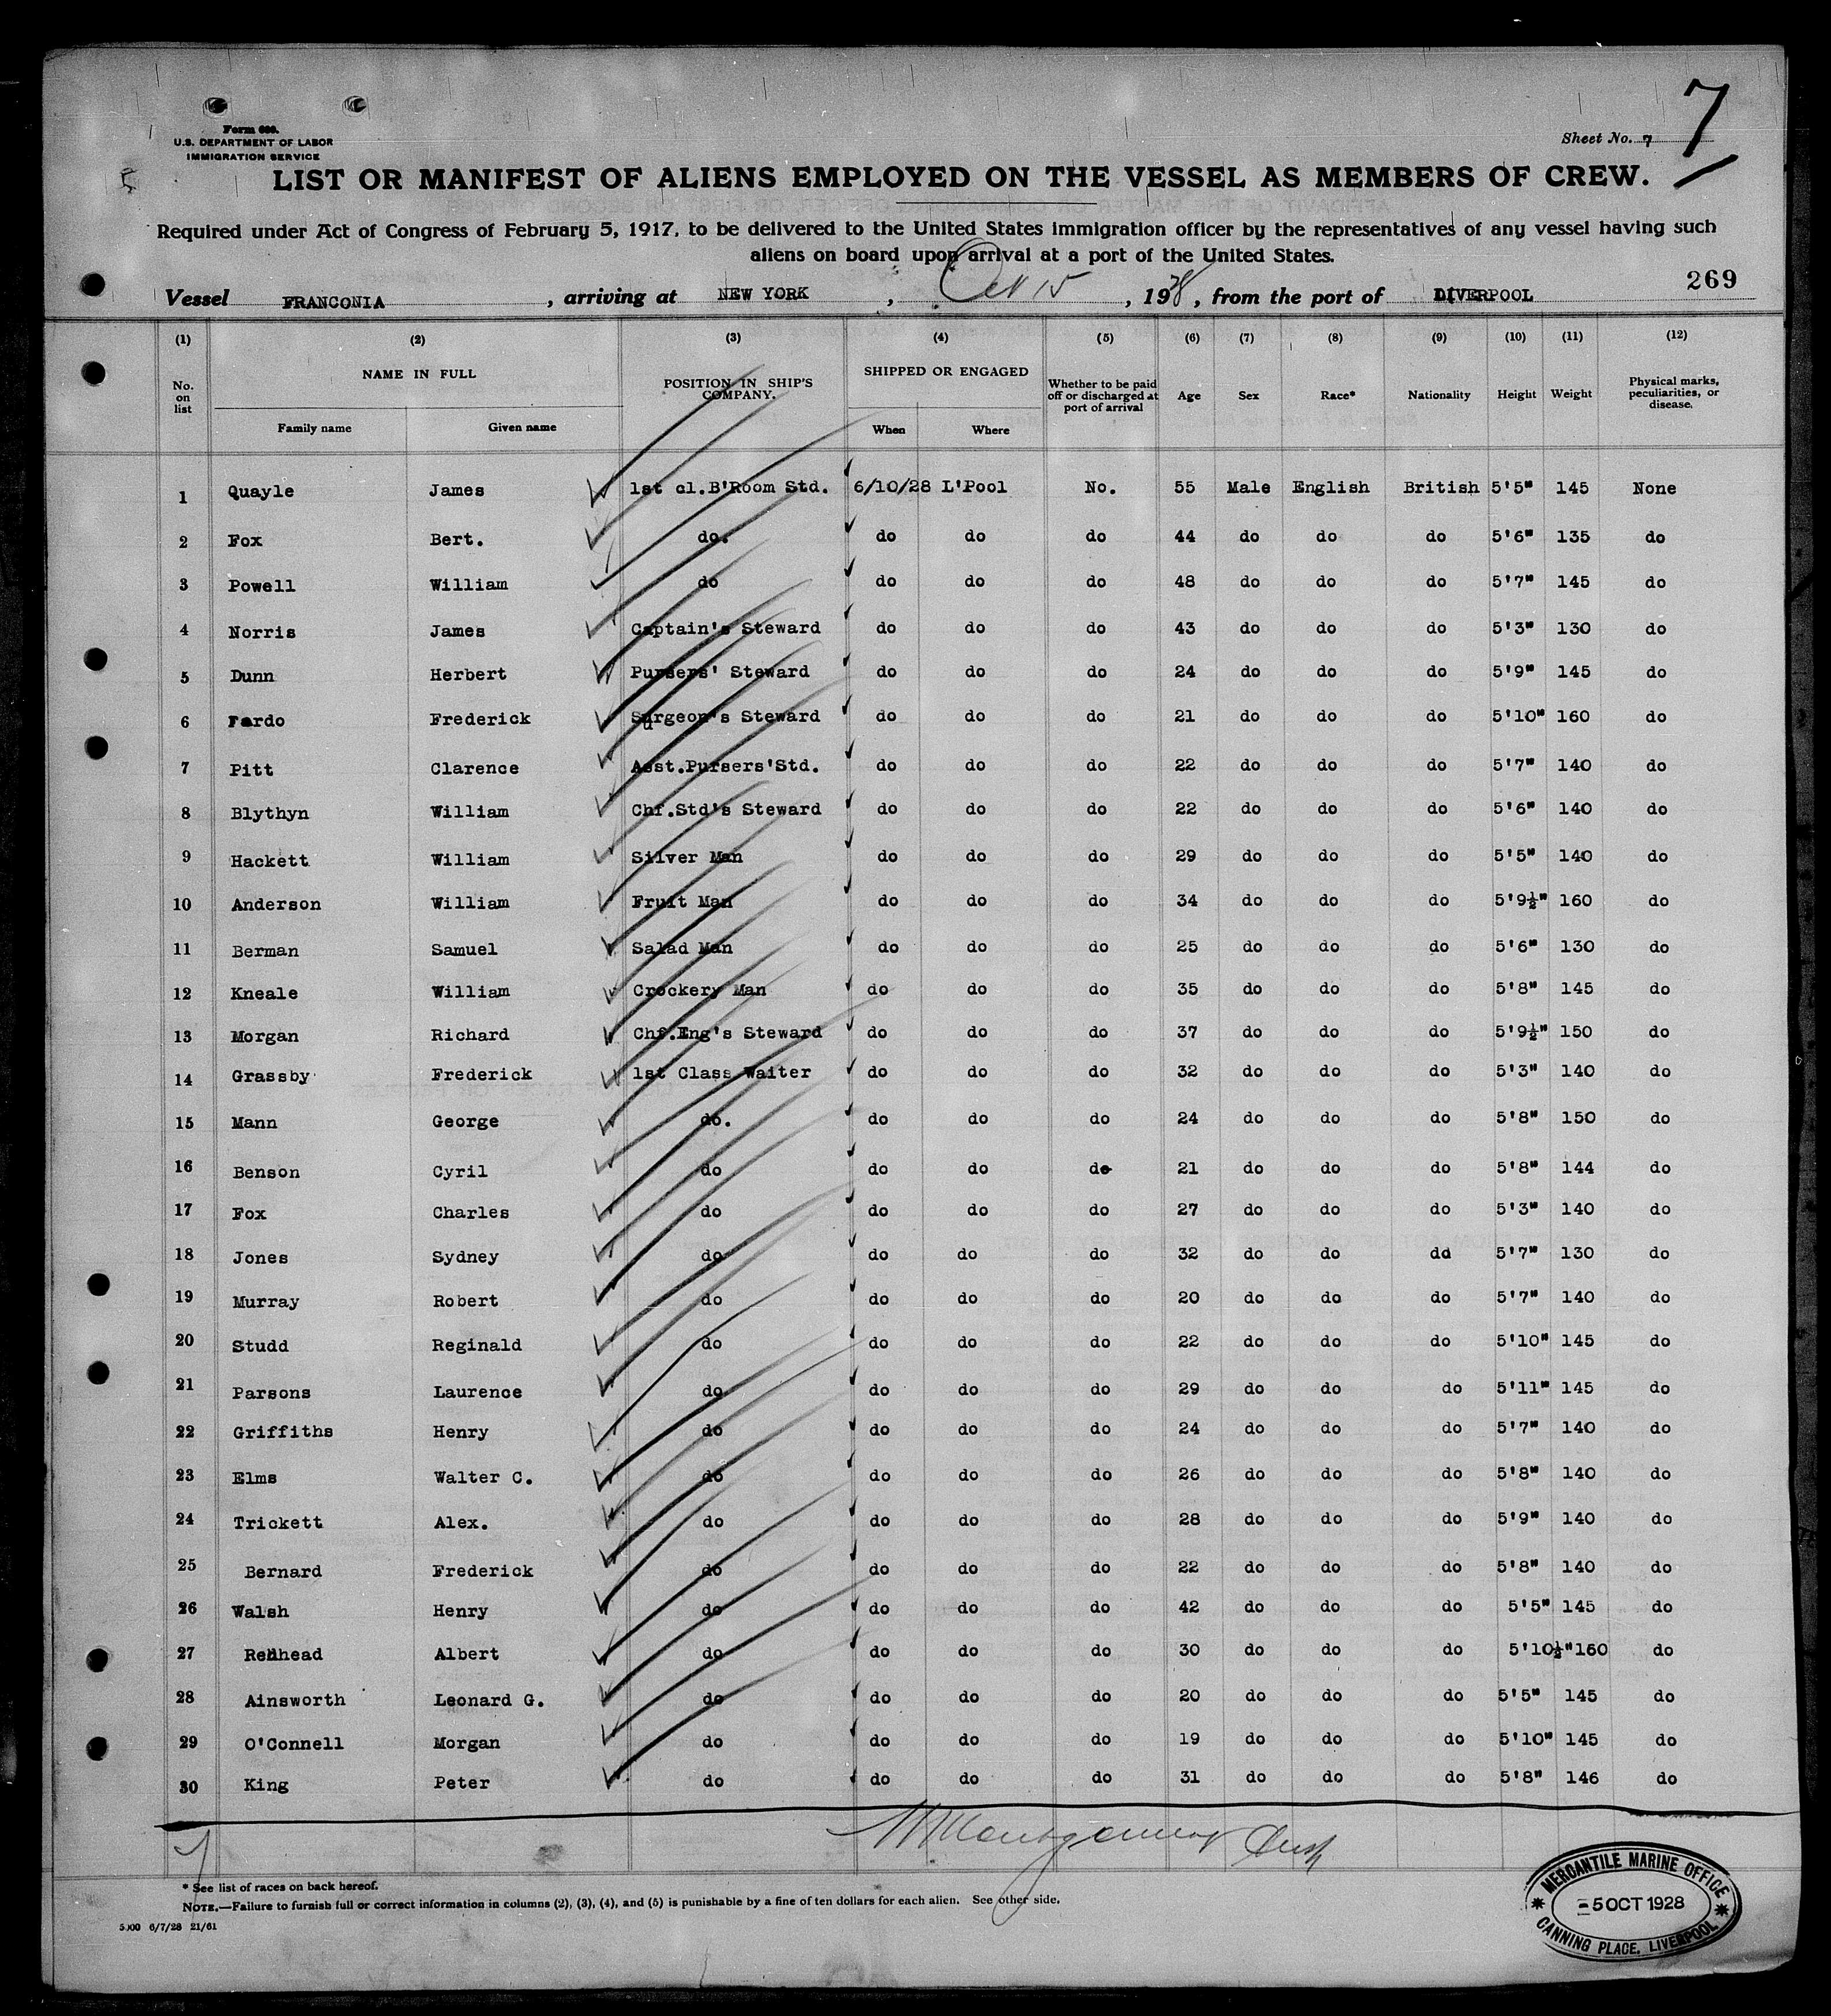 7
Form 680.
U.S. DEPARTMENT OF LABOR
IMMIGRATION SERVICE
Sheet No. 7
LIST OR MANIFEST OF ALIENS EMPLOYED ON THE VESSEL AS MEMBERS OF CREW.
Required under Act of Congress of February 5, 1917, to be delivered to the United States immigration officer by the representatives of any vessel having such
aliens on board upon arrival at a port of the United States.
269
Vessel FRANCONIA, arriving at NEW YORK, Oct 15, 1928, from the port of LIVERPOOL
(1) (2) (3) (4) (5) (6) (7) (8) (9) (10) (11) (12)
No. on list NAME IN FULL POSITION IN SHIP'S COMPANY. SHIPPED OR ENGAGED Whether to be paid off or discharged at port of arrival Age Sex Race* Nationality Height Weight Physical marks, peculiarities, or disease.
Family name Given name When Where
1 Quayle James 1st cl.B'Room Std. 6/10/28 L'Pool No. 55 Male English British 5'5" 145 None
2 Fox Bert. do. do do do 44 do do do 5'6" 135 do
3 Powell William do do do do 48 do do do 5'7" 145 do
4 Norris James Captain's Steward do do do 43 do do do 5'3" 130 do
5 Dunn Herbert Pursers' Steward do do do 24 do do do 5'9" 145 do
6 Fardo Frederick Surgeon's Steward do do do 21 do do do 5'10" 160 do
7 Pitt Clarence Asst.Pursers'Std. do do do 22 do do do 5'7" 140 do
8 Blythyn William Chf.Std's Steward do do do 22 do do do 5'6" 140 do
9 Hackett William Silver Man do do do 29 do do do 5'5" 140 do
10 Anderson William Fruit Man do do do 34 do do do 5'9½" 160 do
11 Berman Samuel Salad Man do do do 25 do do do 5'6" 130 do
12 Kneale William Crockery Man do do do 35 do do do 5'8" 145 do
13 Morgan Richard Chf.Eng's Steward do do do 37 do do do 5'9½" 150 do
14 Grassby Frederick 1st Class Waiter do do do 32 do do do 5'3" 140 do
15 Mann George do. do do do 24 do do do 5'8" 150 do
16 Benson Cyril do do do do 21 do do do 5'8" 144 do
17 Fox Charles do do do do 27 do do do 5'3" 140 do
18 Jones Sydney do do do do 32 do do do 5'7" 130 do
19 Murray Robert do do do do 20 do do do 5'7" 140 do
20 Studd Reginald do do do do 22 do do do 5'10" 145 do
21 Parsons Laurence do do do do 29 do do do 5'11" 145 do
22 Griffiths Henry do do do do 24 do do do 5'7" 140 do
23 Elms Walter C. do do do do 26 do do do 5'8" 140 do
24 Trickett Alex. do do do do 28 do do do 5'9" 140 do
25 Bernard Frederick do do do do 22 do do do 5'8" 140 do
26 Walsh Henry do do do do 42 do do do 5'5" 145 do
27 Redhead Albert do do do do 30 do do do 5'10½" 160 do
28 Ainsworth Leonard G. do do do do 20 do do do 5'5" 145 do
29 O'Connell Morgan do do do do 19 do do do 5'10" 145 do
30 King Peter do do do do 31 do do do 5'8" 146 do
* See list of races on back hereof.
NOTE.—Failure to furnish full or correct information in columns (2), (3), (4), and (5) is punishable by a fine of ten dollars for each alien. See other side.
5000 6/7/28 21/61
MERCANTILE MARINE OFFICE
-5 OCT 1928
CANNING PLACE, LIVERPOOL